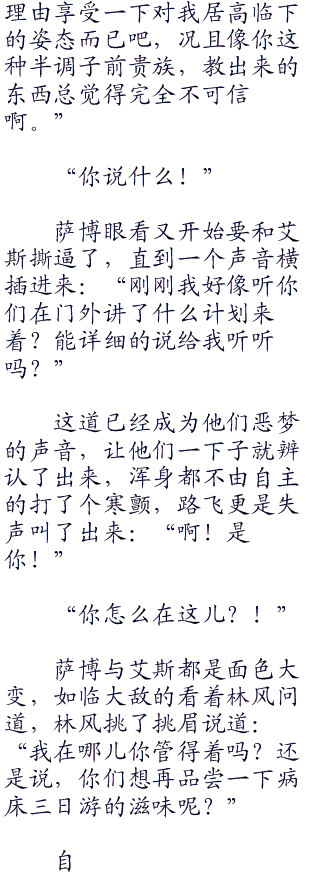 理由享受一下对我居高临下
的姿态而已吧，况且像你这
种半调子前贵族，教出来的
东西总觉得完全不可信
啊。”
“你说什么！”
萨博眼看又开始要和艾
斯撕逼了，直到一个声音横
插进来：“刚刚我好像听你
们在门外讲了什么计划来
着？能详细的说给我听听
吗？”
这道已经成为他们恶梦
的声音，让他们一下子就辨
认了出来，浑身都不由自主
的打了个寒颤，路飞更是失
声叫了出来：“啊！是
你！”
“你怎么在这儿？！”
萨博与艾斯都是面色大
变，如临大敌的看着林风问
道，林风挑了挑眉说道：
“我在哪儿你管得着吗？还
是说，你们想再品尝一下病
床三日游的滋味呢？”
自